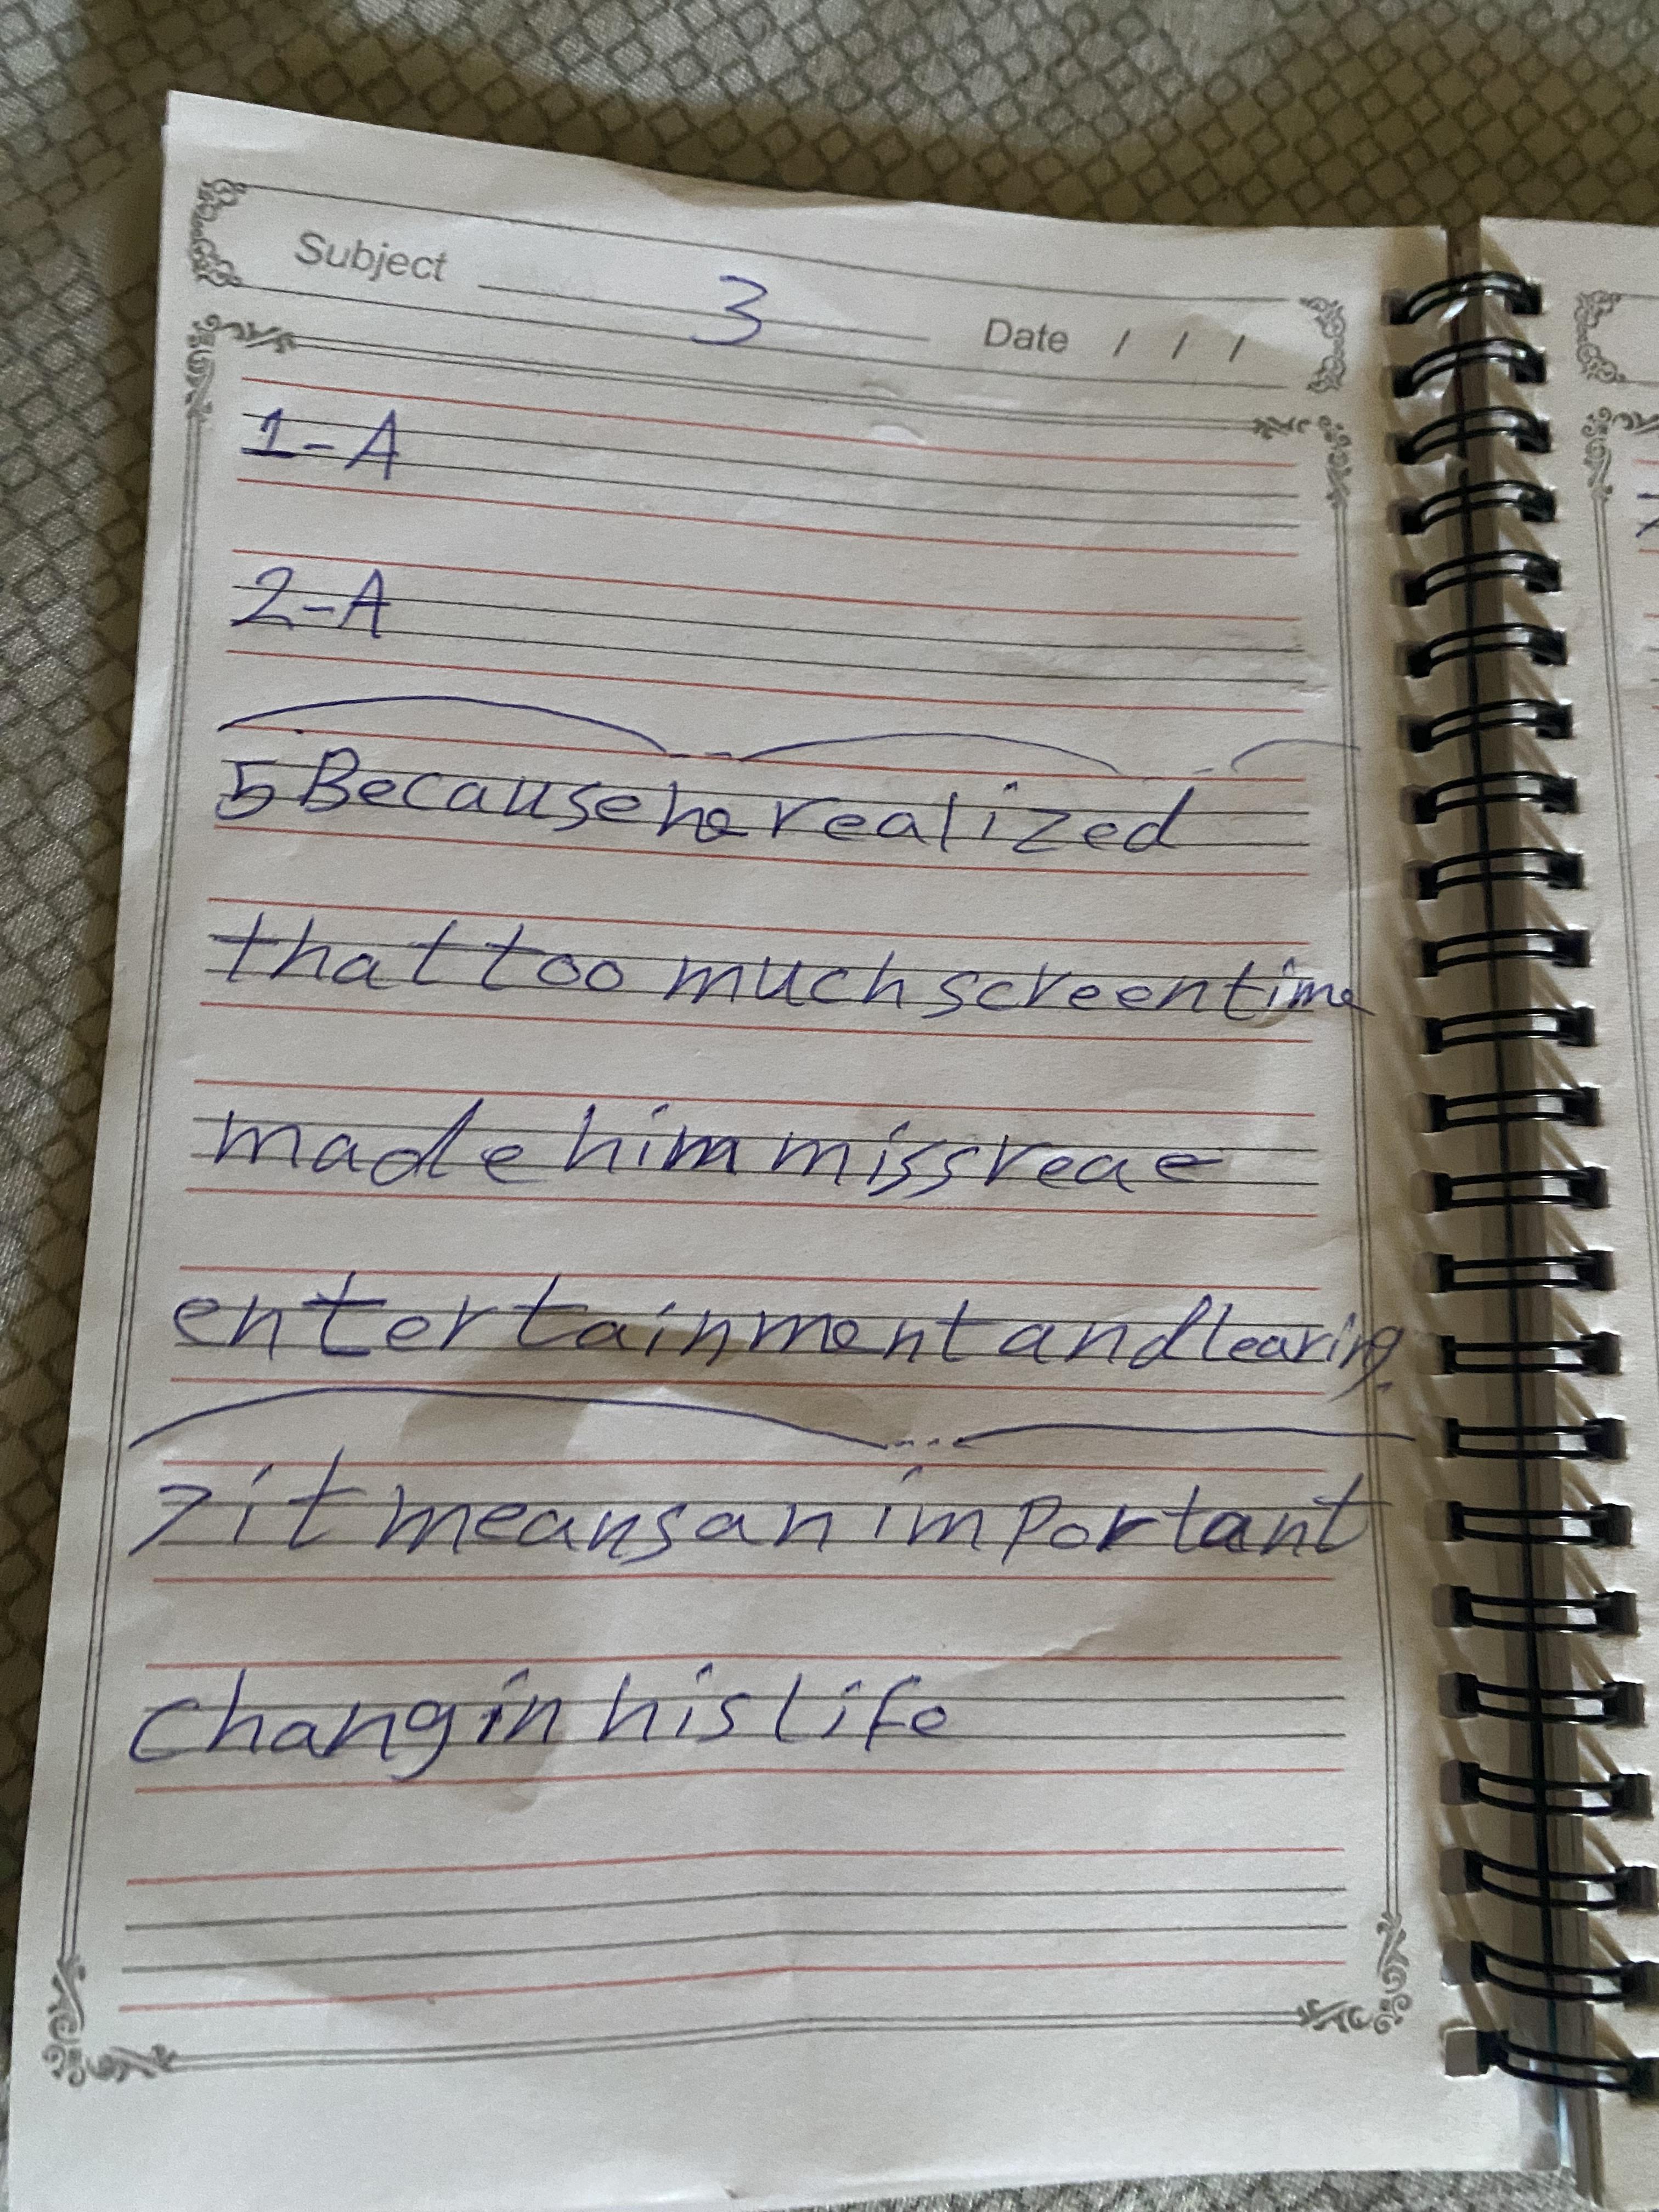 Subject 3 Date / / /
1-A
2-A
5 Because he realized
that too much screen time
made him miss reae
entertainment and learing
7 it means an important
chang in his life